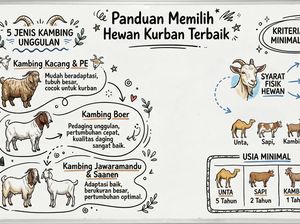 Panduan Memilih
Hewan Kurban Terbaik
5 JENIS KAMBING
UNGGULAN
Kambing Kacang & PE
Mudah beradaptasi,
tubuh besar,
cocok untuk kurban
Kambing Boer
Pedaging unggulan,
pertumbuhan cepat,
kualitas daging
sangat baik.
Kambing Jawaramandu
& Saanen
Adaptasi baik,
berukuran besar,
pertumbuhan optimal.
KRITERIA
MINIMAL
SYARAT
FISIK
HEWAN
Unta,
Sapi,
Kambi
USIA MINIMAL
UNTA
5 Tahun
SAPI
2 Tahun
KAMB
1 Ta